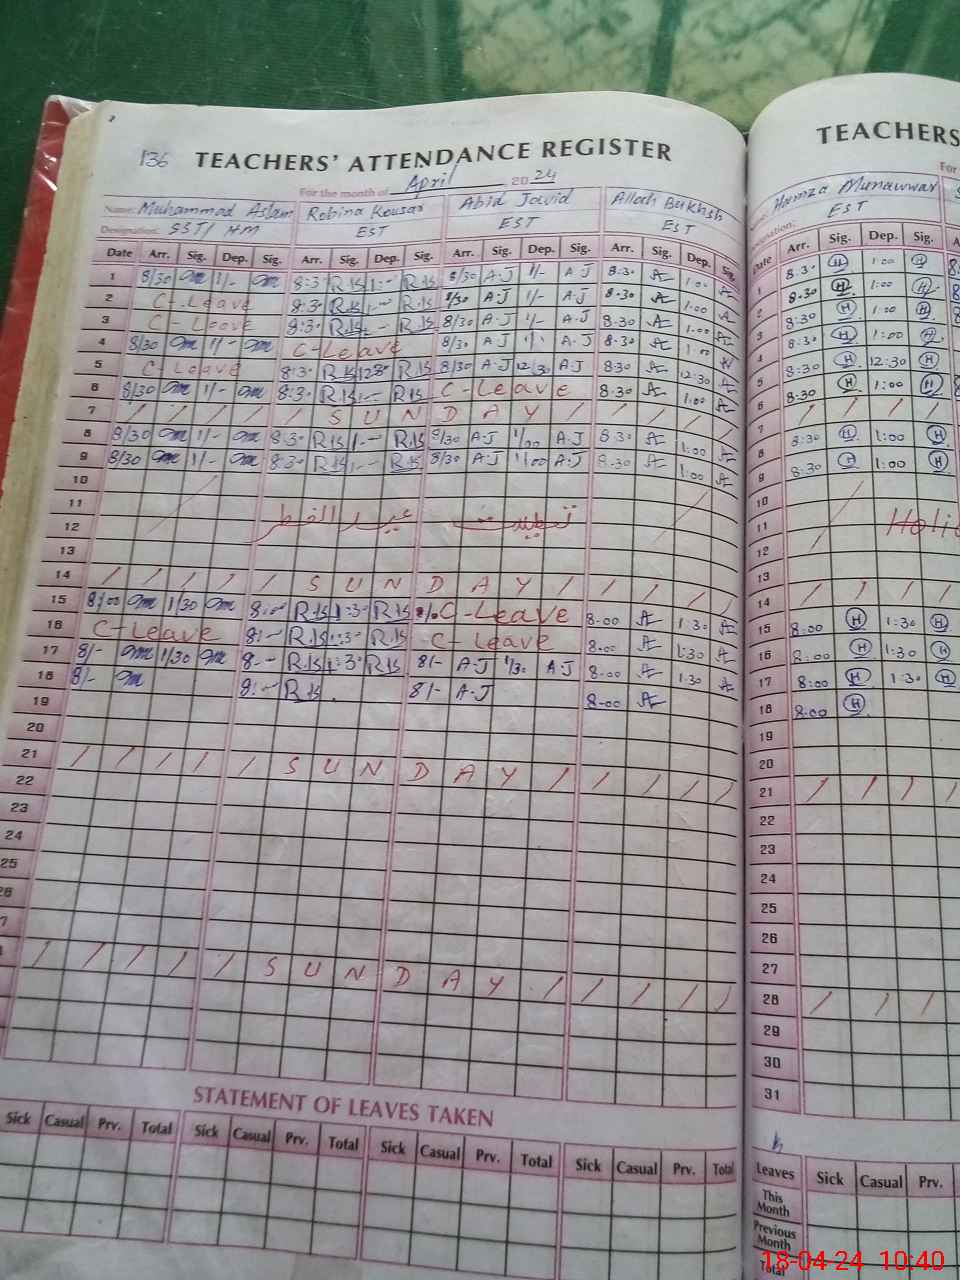 2
136 TEACHERS' ATTENDANCE REGISTER
For the month of April, 2024
Name: Muhammad Aslam Robina Kousar Abid Javid Allah Bukhsh
Designation: SST/ HM EST EST EST
Date Arr. Sig. Dep. Sig. Arr. Sig. Dep. Sig. Arr. Sig. Dep. Sig. Arr. Sig. Dep. Sig.
1 8/30 1/- 8:30 R.B 8/30 A.J 1/- A.J 8:30 1:00
2 C-Leave 8:30 R.B R.B 8/30 A.J 1/- A.J 8.30 1:00
3 C-Leave 8:30 R.B R.B 8/30 A.J 1/- A.J 8.30 1:00
4 8/30 1/- C-Leave 8/30 A.J A.J 8.30 1:00
5 C-Leave 8:30 R.B R.B 8/30 A.J 12/30 A.J 8:30 12:30
6 8/30 1/- 8:30 R.B R.B C-Leave 8:30 1:00
7 / / / / / S U N D A Y / / / / /
8 8/30 1/- 8:30 R.B R.B 8/30 A.J 1/00 A.J 8:30 1:00
9 8/30 1/- 8:30 R.B R.B 8/30 A.J 1/00 A.J 8:30 1:00
10
11
عید الفطر تعطیلات
12
13
14 / / / / / S U N D A Y / / / / /
15 8/00 1/30 R.B R.B C-Leave 8-00 1:30
16 C-Leave R.B R.B C-Leave 8:00 1:30
17 8/- 1/30 R.B R.B 8/- A.J 1/30 A.J 8-00 1:30
18 8/- R.B 8/- A.J 8-00
19
20
21 / / / / / S U N D A Y / / / / /
22
23
24
25
26
7
/ / / / / S U N D A Y / / / / /
STATEMENT OF LEAVES TAKEN
Sick Casual Prv. Total Sick Casual Prv. Total Sick Casual Prv. Total Sick Casual Prv. Total
TEACHERS
For
Hamza Munawwar
EST
Date Arr. Sig. Dep. Sig.
1 8:30 H 1:00 H
2 8:30 H 1:00 H
3 8:30 H 1:00 H
4 8:30 H 1:00 H
5 8:30 H 12:30 H
6 8:30 H 1:00 H
7 / / / /
8 8:30 H 1:00 H
9 8:30 H 1:00 H
10
11
12
13
14 / / / /
15 8:00 H 1:30 H
16 8:00 H 1:30 H
17 8:00 H 1:30 H
18 8:00 H
19
20
21 / / / /
22
23
24
25
26
27
28 / / /
29
30
31
Leaves Sick Casual Prv.
This Month
Previous Month
Total
18-04-24 10:40